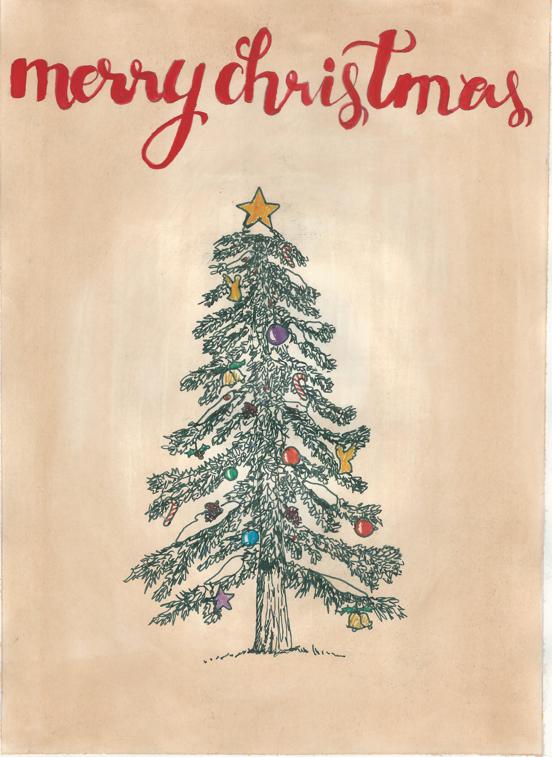 merry christmas